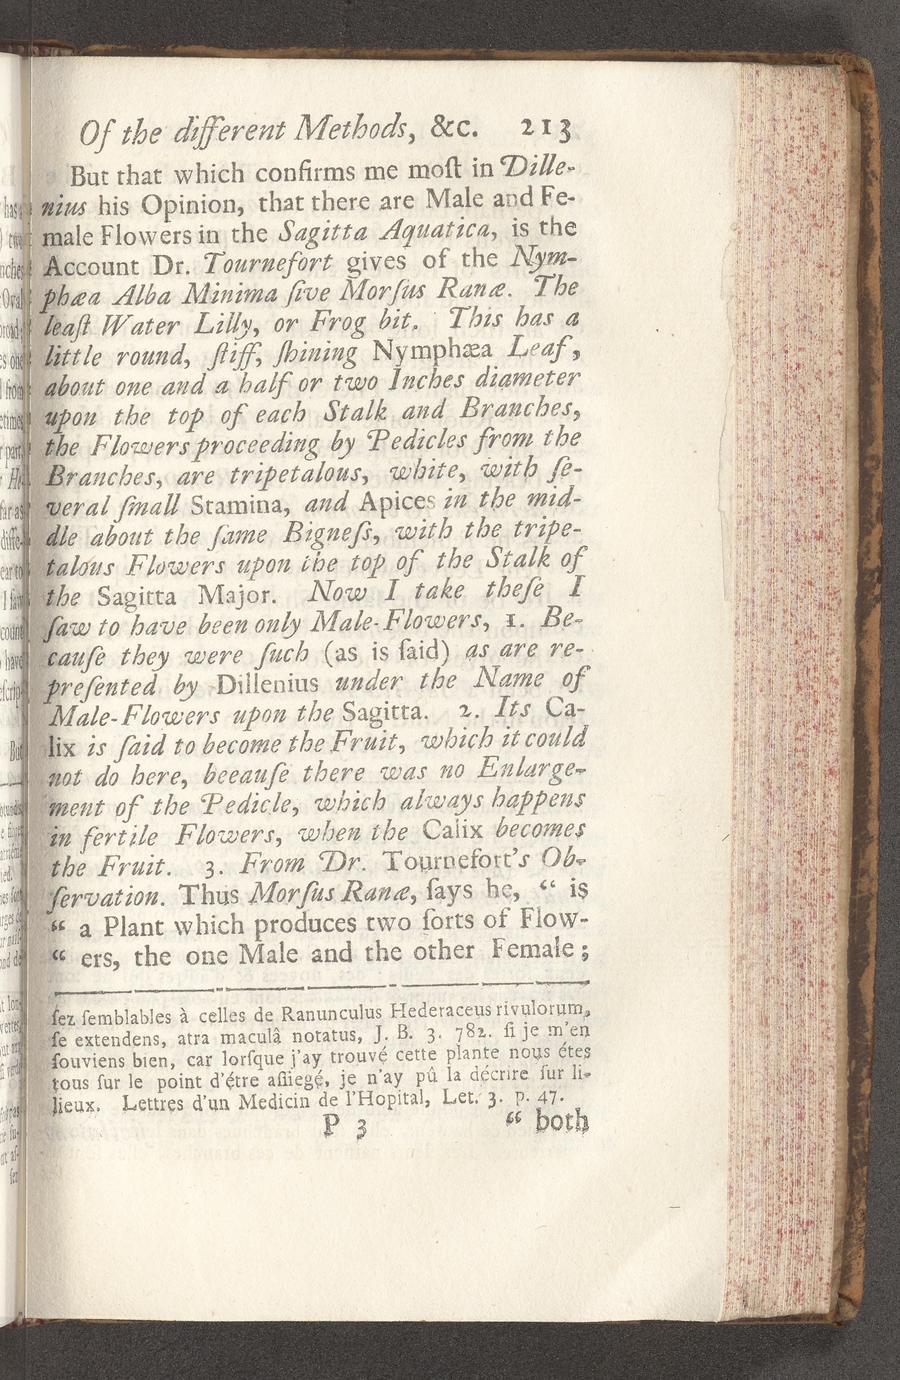 Of the different Methods, &c. 213
But that which confirms me moſt in Dille-
nius his Opinion, that there are Male and Fe-
male Flowers in the Sagitta Aquatica, is the
Account Dr. Tournefort gives of the Nym-
phæa Alba Minima ſive Morſus Ranæ. The
leaſt Water Lilly, or Frog bit. This has a
little round, ſtiff, ſhining Nymphæa Leaf,
about one and a half or two Inches diameter
upon the top of each Stalk and Branches,
the Flowers proceeding by Pedicles from the
Branches, are tripetalous, white, with ſe-
veral ſmall Stamina, and Apices in the mid-
dle about the ſame Bigneſs, with the tripe-
talous Flowers upon the top of the Stalk of
the Sagitta Major. Now I take theſe I
ſaw to have been only Male-Flowers, 1. Be-
cauſe they were ſuch (as is ſaid) as are re-
preſented by Dillenius under the Name of
Male-Flowers upon the Sagitta. 2. Its Ca-
lix is ſaid to become the Fruit, which it could
not do here, beeauſe there was no Enlarge-
ment of the Pedicle, which always happens
in fertile Flowers, when the Calix becomes
the Fruit. 3. From Dr. Tournefort's Ob-
ſervation. Thus Morſus Ranæ, ſays he, “ is
“ a Plant which produces two ſorts of Flow-
“ ers, the one Male and the other Female;
ſez ſemblables à celles de Ranunculus Hederaceus rivulorum,
ſe extendens, atra maculâ notatus, J. B. 3. 782. ſi je m'en
ſouviens bien, car lorſque j'ay trouvé cette plante nous étes
tous ſur le point d'étre aſſiegé, je n'ay pû la décrire ſur li-
lieux. Lettres d'un Medicin de l'Hopital, Let. 3. p. 47.
P 3 “ both